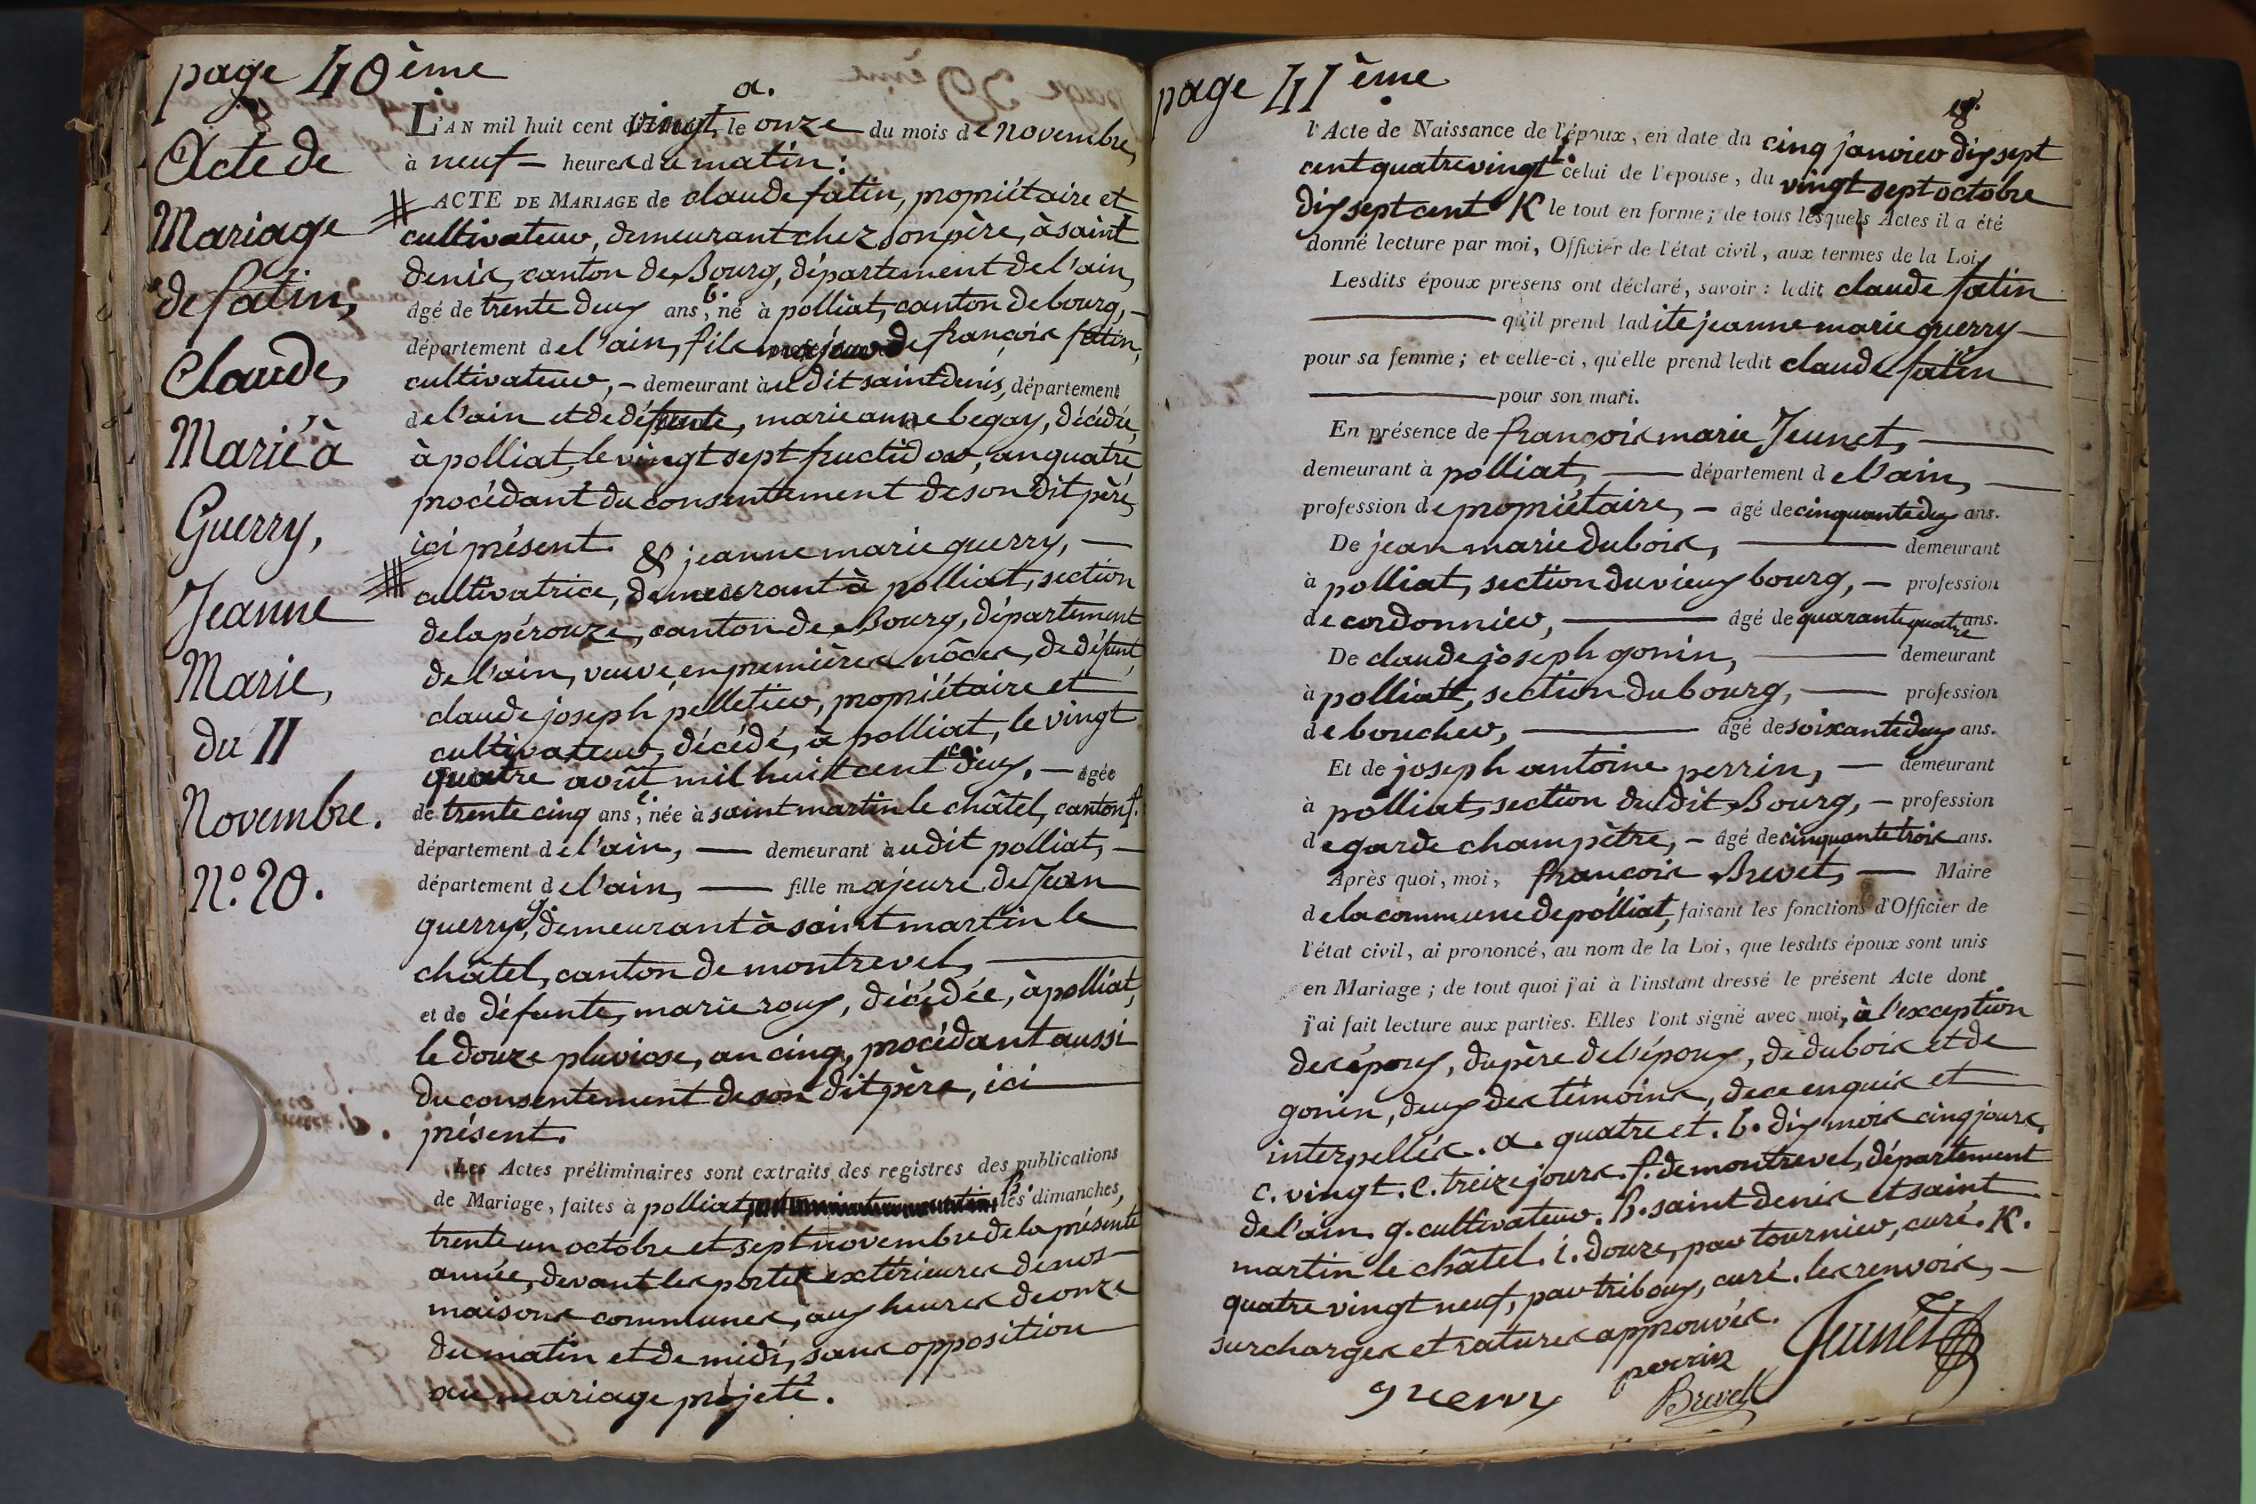 page 40ème
Acte de
Mariage
de fatin,
Claude,
Marié à
Guerry,
Jeanne
Marie,
du 11
Novembre.
N.º 20.
a.
L'AN mil huit cent vingt, le onze du mois de novembre,
à neuf heures du matin:
ACTE DE MARIAGE de claude fatin, propriétaire et
cultivateur, demeurant chez son père, à saint
denis, canton de Bourg, département de l'ain,
âgé de trente deux ans b. né à polliat, canton de bourg,
département de l'ain, fils majeur de françois fatin,
cultivateur, demeurant audit saint denis, département
de l'ain et de défunte, marie anne begay, décédée,
à polliat, le vingt sept fructidor, an quatre
procédant du consentement de son dit père,
ici présent. & jeanne marie guerry,
cultivatrice, demeurant à polliat, section
de la pérouze, canton de Bourg, département
de l'ain, veuve, en premières nôces, de défunt,
claude joseph pelletier, propriétaire et
cultivateur, décédé, à polliat, le vingt
quatre août mil huit cent c. dix, âgée
de trente cinq ans e. née à saint martin le châtel, canton f.
département de l'ain, demeurant audit polliat,
département de l'ain, fille majeure de Jean
guerry g. demeurant à saint martin le
châtel, canton de montrevel,
et de défunte, marie roux, décédée, à polliat,
le douze pluviose, an cinq, procédant aussi
du consentement de son dit père, ici
présent.
Les Actes préliminaires sont extraits des registres des publications
de Mariage, faites à polliat, h. les dimanches,
trente un octobre et sept novembre de la présente
année, devant les portes extérieures de nos
maisons communes, aux heures de onze
du matin et de midi, sans opposition
au mariage projeté.
page 41ème
l'Acte de Naissance de l'époux, en date du cinq janvier dix sept
cent quatre vingt i. celui de l'épouse, du vingt sept octobre
dix sept cent K le tout en forme; de tous lesquels Actes il a été
donné lecture par moi, Officier de l'état civil, aux termes de la Loi.
Lesdits époux présens ont déclaré, savoir: ledit claude fatin
qu'il prend ladite jeanne marie guerry
pour sa femme; et celle-ci, qu'elle prend ledit claude fatin
pour son mari.
En présence de françois marie Jeunet,
demeurant à polliat, département de l'ain,
profession de propriétaire, âgé de cinquante deux ans.
De jean marie dubois, demeurant
à polliat, section du vieux bourg, profession
de cordonnier, âgé de quarante quatre ans.
De claude joseph gonin, demeurant
à polliat, section du bourg, profession
de boucher, âgé de soixante deux ans.
Et de joseph antoine perrin, demeurant
à polliat, section dudit Bourg, profession
de garde champêtre, âgé de cinquante trois ans.
Après quoi, moi, françois Brevet, Maire
de la commune de polliat, faisant les fonctions d'Officier de
l'état civil, ai prononcé, au nom de la Loi, que lesdits époux sont unis
en Mariage; de tout quoi j'ai à l'instant dressé le présent Acte dont
j'ai fait lecture aux parties. Elles l'ont signé avec moi, à l'exception
des époux, du père de l'époux, de dubois et de
gonin, deux des témoins, de ce enquis et
interpellés. a. quatre et. b. dix mois cinq jours.
c. vingt. e. treize jours. f. de montrevel, département
de l'ain. g. cultivateur. h. saint denis et saint
martin le châtel. i. douze, par tournier, curé. K.
quatre vingt neuf, par triboux, curé. les renvois,
surcharges et ratures approuvés.
Jeunet
perrin
guerry
Brevet